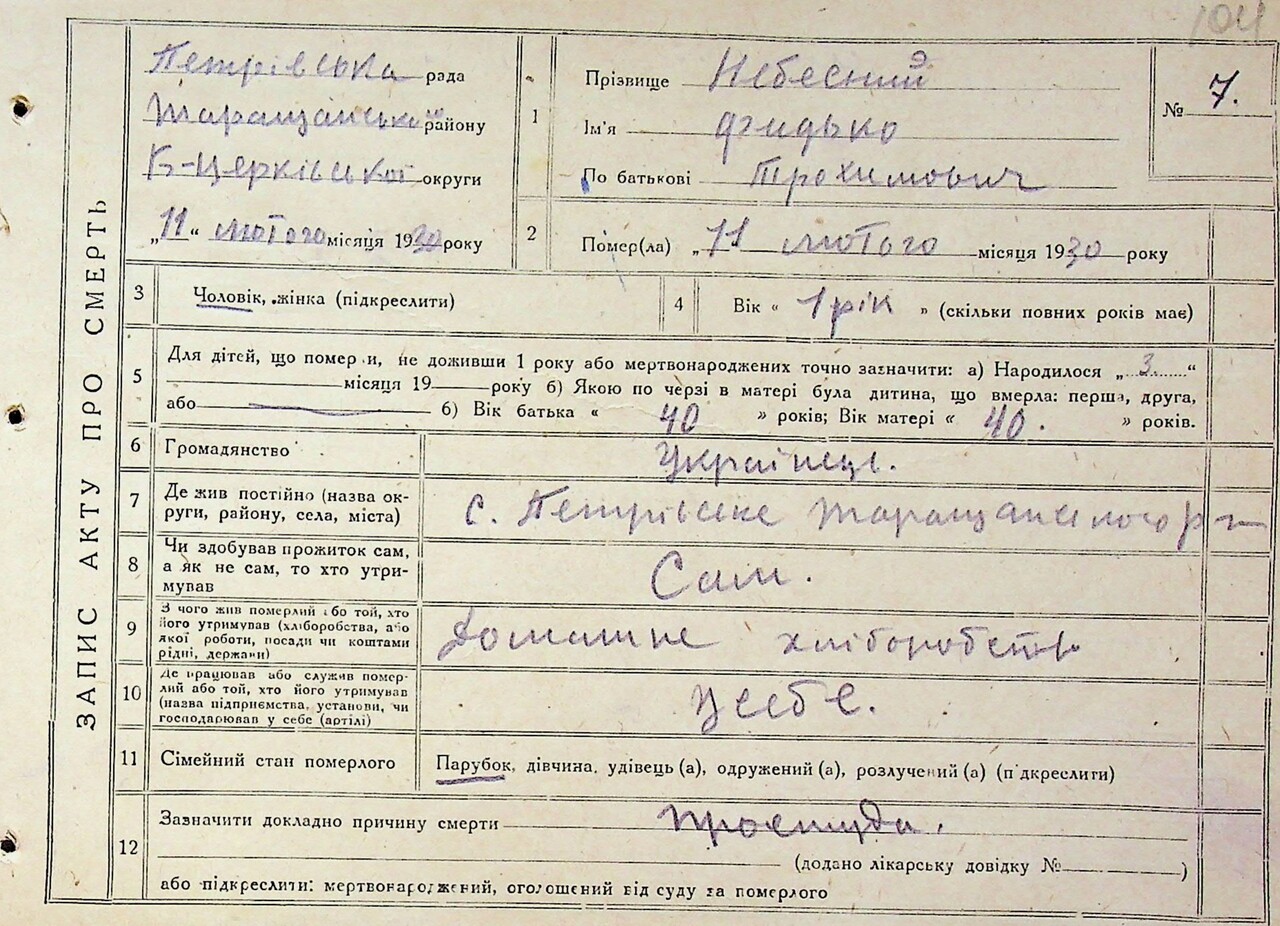 104
ЗАПИС АКТУ ПРО СМЕРТЬ
Петрівська рада
Таращанської району
Б-Церківської округи
„11“ лютого місяця 1930 року
1
Прізвище Небесний
Ім'я Фидько
По батькові Трохимович
№ 7.
2
Помер(ла) „11 лютого місяця 1930 року
3
Чоловік, жінка (підкреслити)
4
Вік « 1 рік » (скільки повних років має)
5
Для дітей, що померли, не доживши 1 року або мертвонароджених точно зазначити: а) Народилося „ 3. “
місяця 19 року б) Якою по черзі в матері була дитина, що вмерла: перша, друга,
або б) Вік батька « 40 » років; Вік матері « 40. » років.
6
Громадянство
Українець.
7
Де жив постійно (назва ок-
руги, району, села, міста)
с. Петрівське Таращанського р-н
8
Чи здобував прожиток сам,
а як не сам, то хто утри-
мував
Сам.
9
З чого жив померлий або той, хто
його утримував (хліборобства, або
якої роботи, посади чи коштами
рідні, держави)
Домашнє хліборобств
10
Де працював або служив помер-
лий або той, хто його утримував
(назва підприємства, установи, чи
господарював у себе (артілі)
У себе.
11
Сімейний стан померлого
Парубок, дівчина, удівець (а), одружений (а), розлучений (а) (підкреслити)
12
Зазначити докладно причину смерти простуда.
(додано лікарську довідку № )
або підкреслити: мертвонароджений, оголошений від суду за померлого